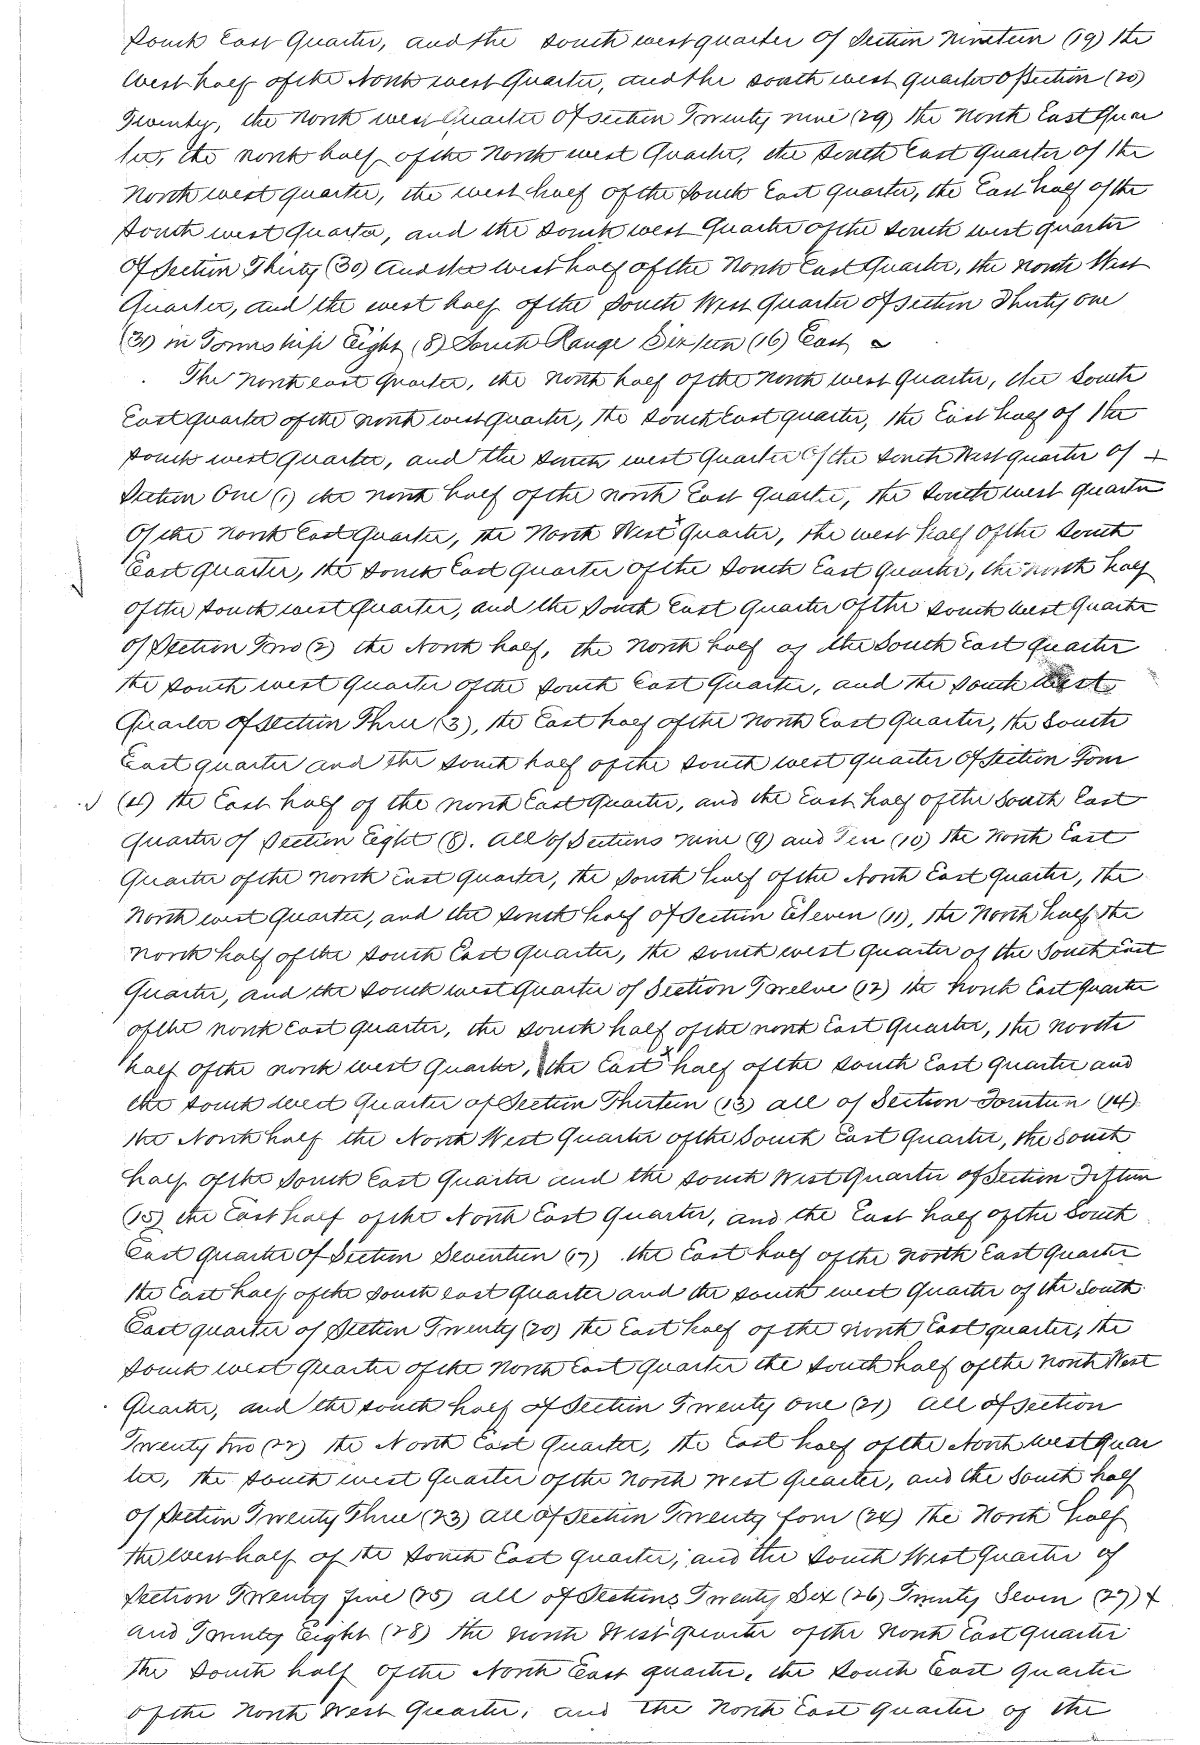 South East Quarter, and the south west quarter of Section Nineteen (19) the
West half of the North west Quarter, and the south west Quarter of Section (20)
Twenty, the North west Quarter of section Twenty nine (29) the North East Quar
ter, the north half of the North west Quarter, the South East Quarter of the
North west quarter, the west half of the South East quarter, the East half of the
South west Quarter, and the South west Quarter of the South west quarter
of Section Thirty (30) and the west half of the North East Quarter, the North West
Quarter, and the west half of the South West Quarter of section Thirty one
(31) in Township Eight (8) South Range Sixteen (16) East
The North east Quarter, the North half of the North west Quarter, the South
East quarter of the north west quarter, the South East quarter, the East half of the
South west Quarter, and the South west Quarter of the South West quarter of +
Section One (1) the north half of the north East Quarter, the South west quarter
of the North East Quarter, the North West Quarter, the west half of the South
East Quarter, the South East Quarter of the South East Quarter, the north half
of the South west Quarter, and the South East Quarter of the South West Quarter
of Section Two (2) the North half, the North half of the South East Quarter
the South west Quarter of the South East Quarter, and the South West
Quarter of Section Three (3), the East half of the North East Quarter, the South
East quarter and the South half of the South west quarter of Section Four
(4) the East half of the north East Quarter, and the East half of the South East
Quarter of Section Eight (8). All of Sections nine (9) and Ten (10) the North East
Quarter of the North East Quarter, the South half of the North East Quarter, the
North west Quarter, and the South half of Section Eleven (11), the North half the
North half of the South East Quarter, the South west quarter of the South East
Quarter, and the South west Quarter of Section Twelve (12) the North East Quarter
of the North East quarter, the South half of the north East Quarter, the North
half of the north west Quarter, the East half of the South East Quarter and
the South West Quarter of Section Thirteen (13) all of Section Fourteen (14)
the North half the North West Quarter of the South East Quarter, the South
half of the South East Quarter and the South West Quarter of Section Fifteen
(15) the East half of the North East Quarter, and the East half of the South
East Quarter of Section Seventeen (17) the East half of the North East Quarter
the East half of the South east Quarter and the South west Quarter of the South
East quarter of Section Twenty (20) the East half of the North East quarter, the
South west Quarter of the North East Quarter the South half of the North West
Quarter, and the South half of Section Twenty One (21) all of Section
Twenty two (22) the North East Quarter, the East half of the North West Quar
ter, the South west Quarter of the North West Quarter, and the South half
of Section Twenty Three (23) all of Section Twenty four (24) the North half
the West half of the South East quarter, and the South West Quarter of
Section Twenty five (25) all of Sections Twenty Six (26) Twenty Seven (27) +
and Twenty Eight (28) the North West quarter of the North East quarter
the South half of the North East quarter, the South East Quarter
of the North West Quarter, and the North East Quarter of the